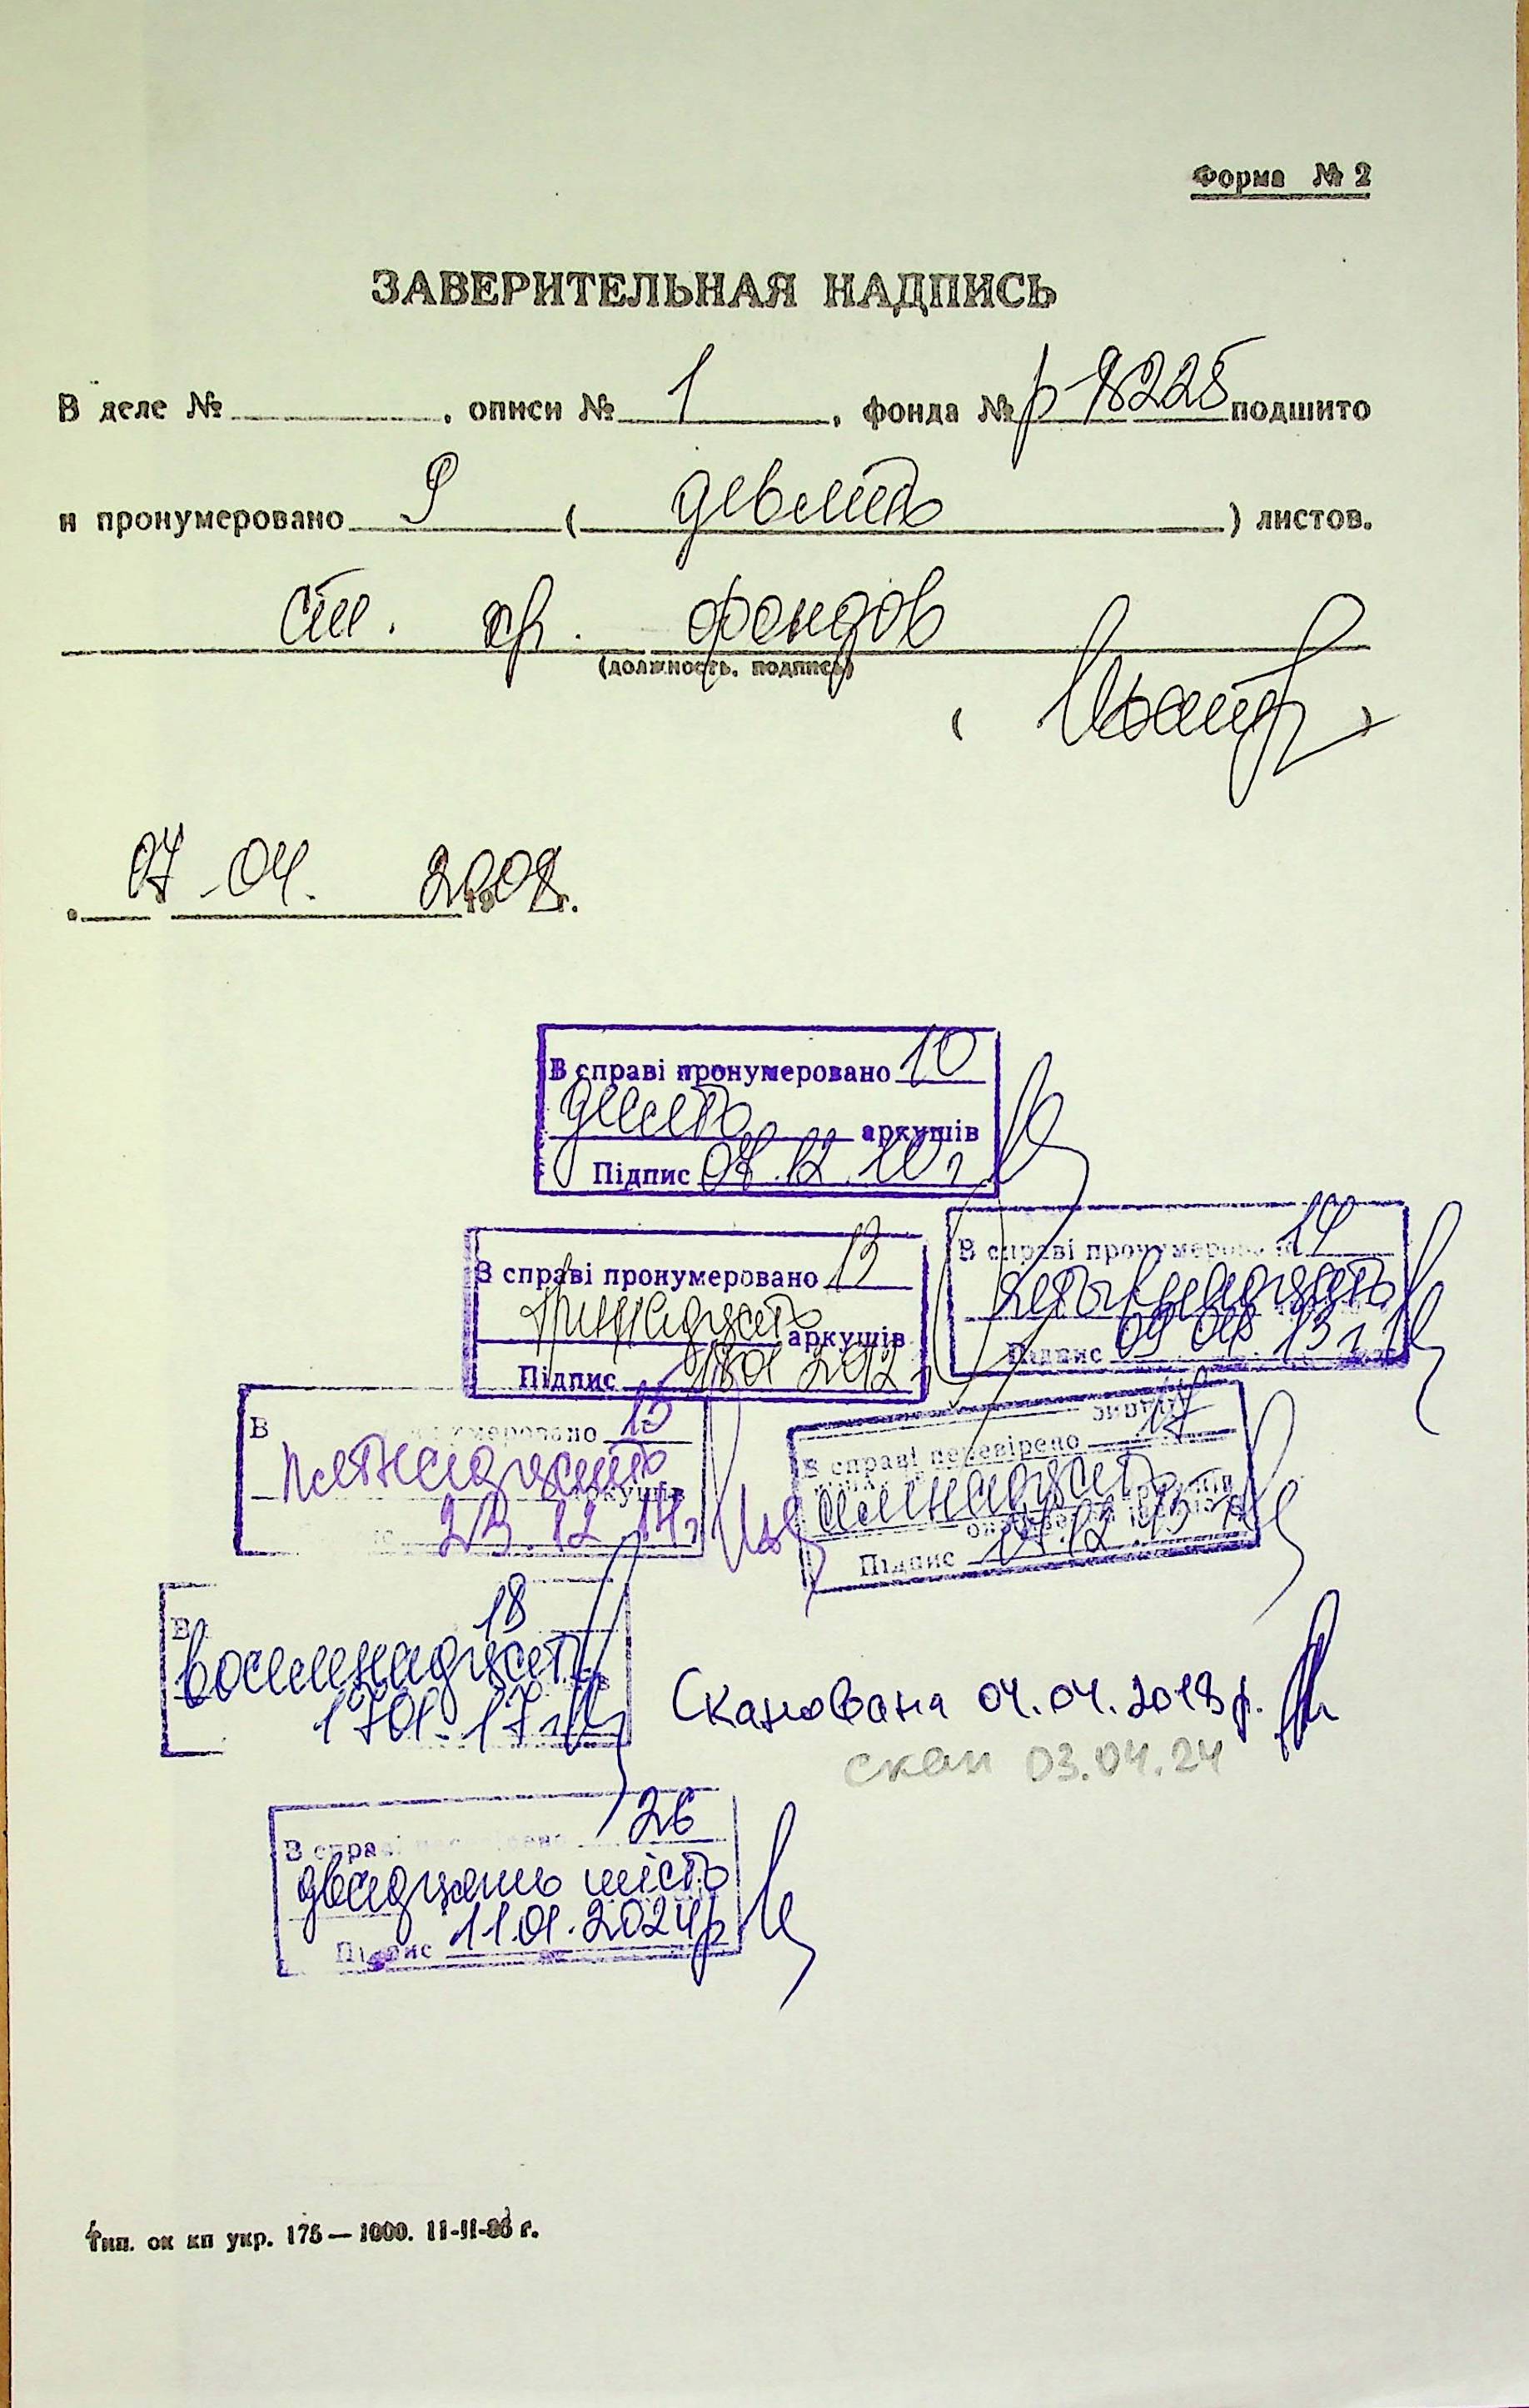 Форма № 2
ЗАВЕРИТЕЛЬНАЯ НАДПИСЬ
В деле № , описи № 1 , фонда № р-8225 подшито
и пронумеровано 9 ( девять ) листов.
ст. хр. фондов
(должность, подпись)
07 - 04. 2008 г.
В справі пронумеровано 10
десять аркушів
Підпис 07.12.10 г
В справі пронумеровано 13
тринадцать аркушів
Підпис 2012
В справі пронумеровано 14
четырнадцать
Підпис 09 04 13 г
В пронумеровано 15
пятнадцать аркушів
23.12.14 г
В справі перевірено 17
семнадцать
Підпис 17.12.15 г
В 18
восемнадцать
17 01 - 17 г
Сканована 04.04.2018 р.
скан 03.04.24
В справі 26
двадцать шість
Підпис 11.01.2024 р
Тип. ок кп укр. 175 — 1000. 11-II-86 г.